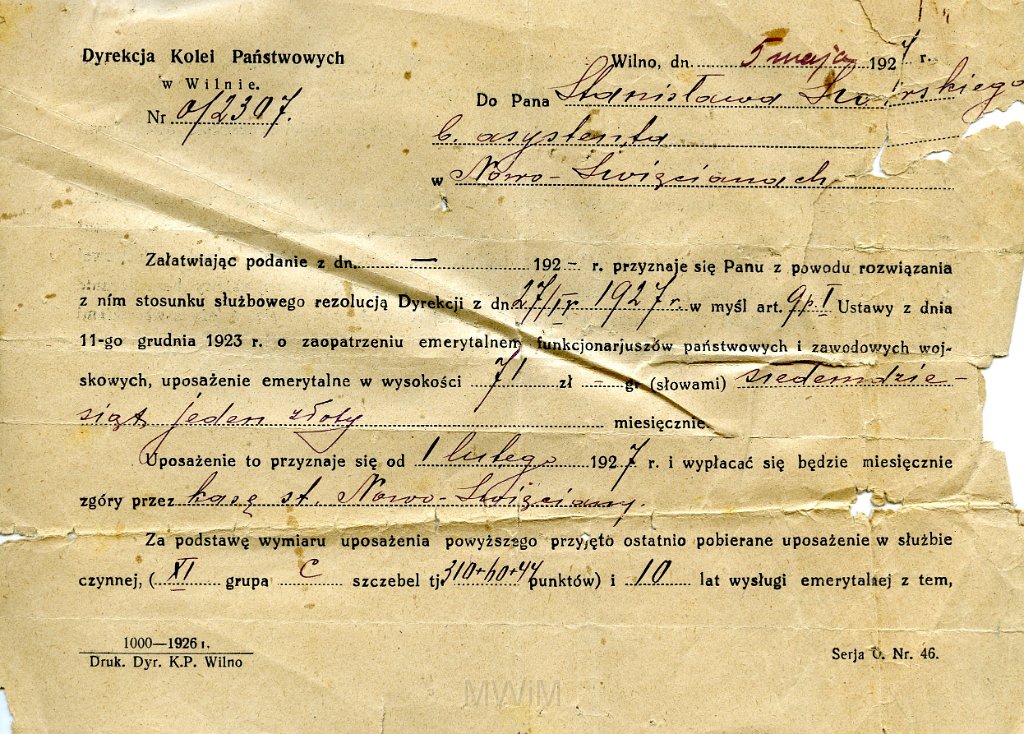 Dyrekcja Kolei Państwowych
w Wilnie.
Nr 0/2307.
Wilno, dn. 5 maja 1927 r.
Do Pana Stanisława
b. asystenta
w Nowo-Święcianach
Załatwiając podanie z dn. — 192 – r. przyznaje się Panu z powodu rozwiązania
z nim stosunku służbowego rezolucją Dyrekcji z dn. 27/I r. 1927 r. w myśl art. 9 p. I Ustawy z dnia
11-go grudnia 1923 r. o zaopatrzeniu emerytalnem funkcjonarjuszów państwowych i zawodowych woj-
skowych, uposażenie emerytalne w wysokości 71 zł – gr (słowami) siedemdzie-
siąt jeden złoty miesięcznie.
Uposażenie to przyznaje się od 1 lutego 1927 r. i wypłacać się będzie miesięcznie
zgóry przez kasę st. Nowo-Święciany.
Za podstawę wymiaru uposażenia powyższego przyjęto ostatnio pobierane uposażenie w służbie
czynnej, (XI grupa C szczebel tj 310+60+44 punktów) i 10 lat wysługi emerytalnej z tem,
1000—1926 r.
Druk. Dyr. K.P. Wilno
Serja O. Nr. 46.
MWiM